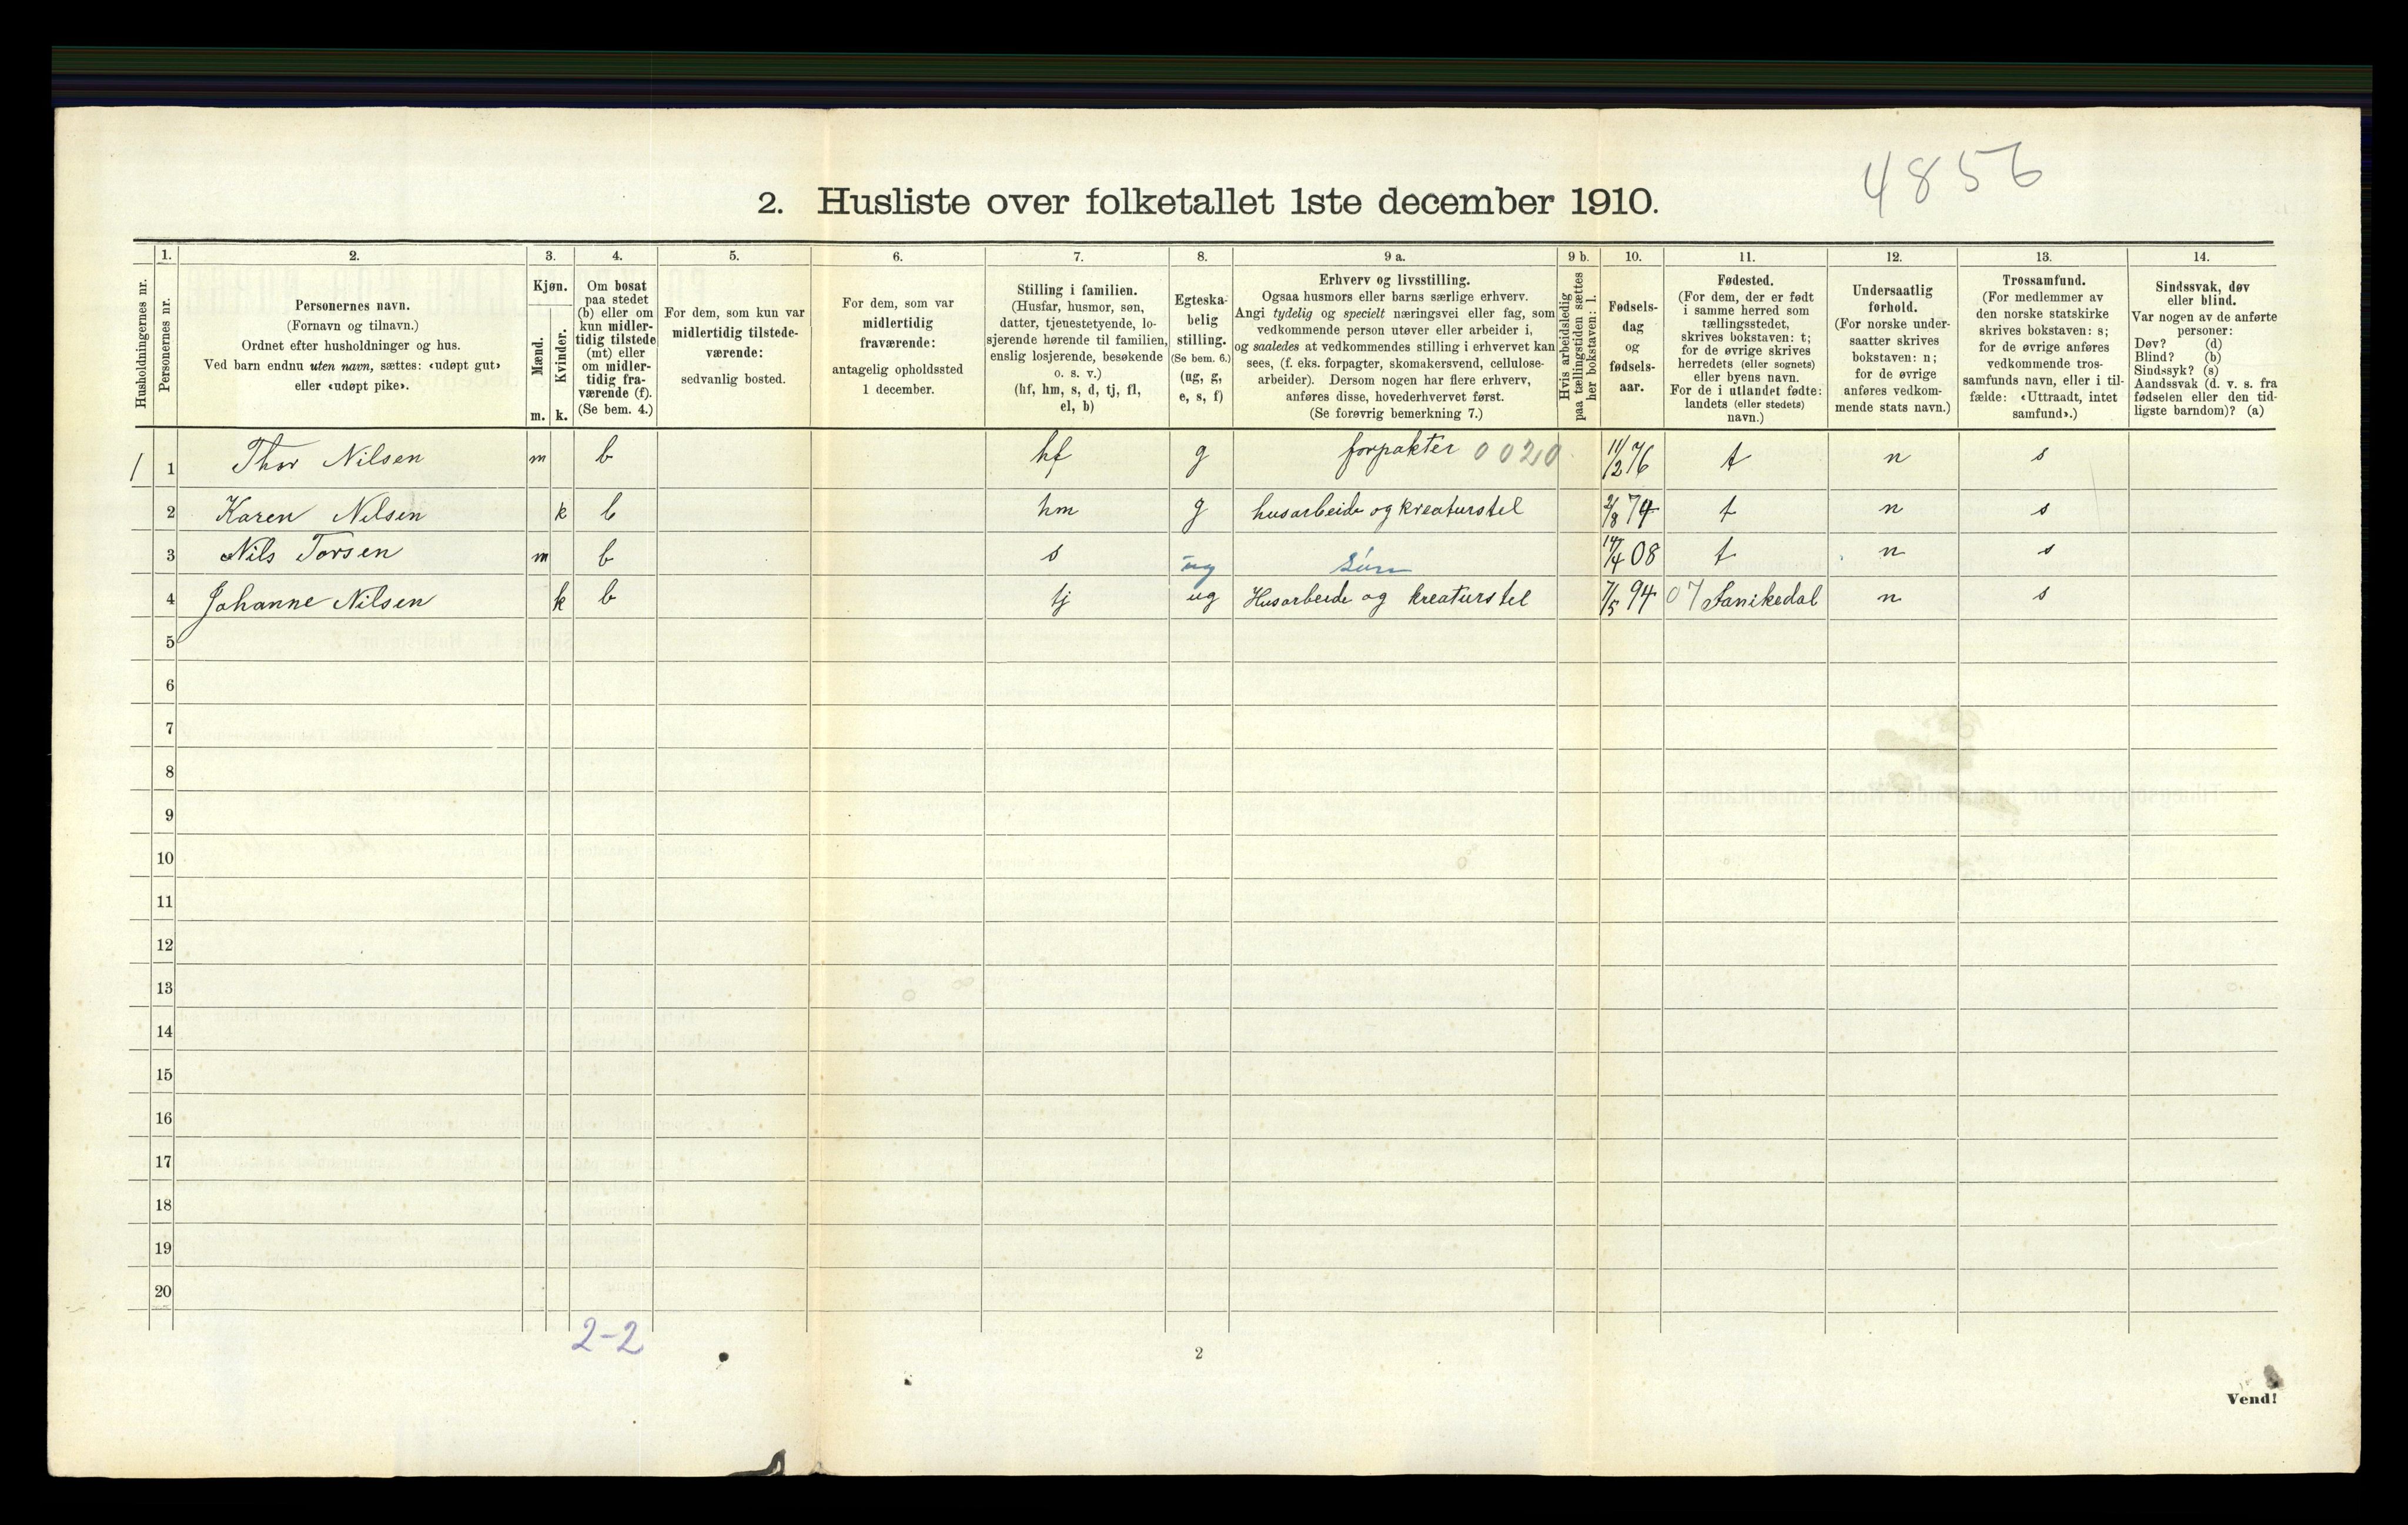 4856
2. Husliste over folketallet 1ste december 1910.
Husholdningernes nr.
1.
Personernes nr.
2.
Personernes navn.
(Fornavn og tilnavn.)
Ordnet efter husholdninger og hus.
Ved barn endnu uten navn, sættes: «udøpt gut»
eller «udøpt pike».
3.
Kjøn.
Mænd.
Kvinder.
m. k.
4.
Om bosat
paa stedet
(b) eller om
kun midler-
tidig tilstede
(mt) eller
om midler-
tidig fra-
værende (f).
(Se bem. 4.)
5.
For dem, som kun var
midlertidig tilstede-
værende:
sedvanlig bosted.
6.
For dem, som var
midlertidig
fraværende:
antagelig opholdssted
1 december.
7.
Stilling i familien.
(Husfar, husmor, søn,
datter, tjenestetyende, lo-
sjerende hørende til familien,
enslig losjerende, besøkende
o. s. v.)
(hf, hm, s, d, tj, fl,
el, b)
8.
Egteska-
belig
stilling.
(Se bem. 6.)
(ug, g,
e, s, f)
9 a.
Erhverv og livsstilling.
Ogsaa husmors eller barns særlige erhverv.
Angi tydelig og specielt næringsvei eller fag, som
vedkommende person utøver eller arbeider i,
og saaledes at vedkommendes stilling i erhvervet kan
sees, (f. eks. forpagter, skomakersvend, cellulose-
arbeider). Dersom nogen har flere erhverv,
anføres disse, hovederhvervet først.
(Se forøvrig bemerkning 7.)
9 b.
Hvis arbeidsledig
paa tællingstiden sættes
her bokstaven: l.
10.
Fødsels-
dag
og
fødsels-
aar.
11.
Fødested.
(For dem, der er født
i samme herred som
tællingsstedet,
skrives bokstaven: t;
for de øvrige skrives
herredets (eller sognets)
eller byens navn.
For de i utlandet fødte:
landets (eller stedets)
navn.)
12.
Undersaatlig
forhold.
(For norske under-
saatter skrives
bokstaven: n;
for de øvrige
anføres vedkom-
mende stats navn.)
13.
Trossamfund.
(For medlemmer av
den norske statskirke
skrives bokstaven: s;
for de øvrige anføres
vedkommende tros-
samfunds navn, eller i til-
fælde: «Uttraadt, intet
samfund».)
14.
Sindssvak, døv
eller blind.
Var nogen av de anførte
personer:
Døv? (d)
Blind? (b)
Sindssyk? (s)
Aandssvak (d. v. s. fra
fødselen eller den tid-
ligste barndom)? (a)
1 1 Thor Nilsen m b hf g forpakter 0020 11/2 76 t n s
2 Karen Nilsen k b hm g husarbeide og kreaturstel 2/8 74 t n s
3 Nils Torsen m b s ug søn 14/4 08 t n s
4 Johanne Nilsen k b tj ug Husarbeide og kreaturstel 7/5 94 07 Sanikedal n s
5
6
7
8
9
10
11
12
13
14
15
16
17
18
19
20
2-2
2
Vend!